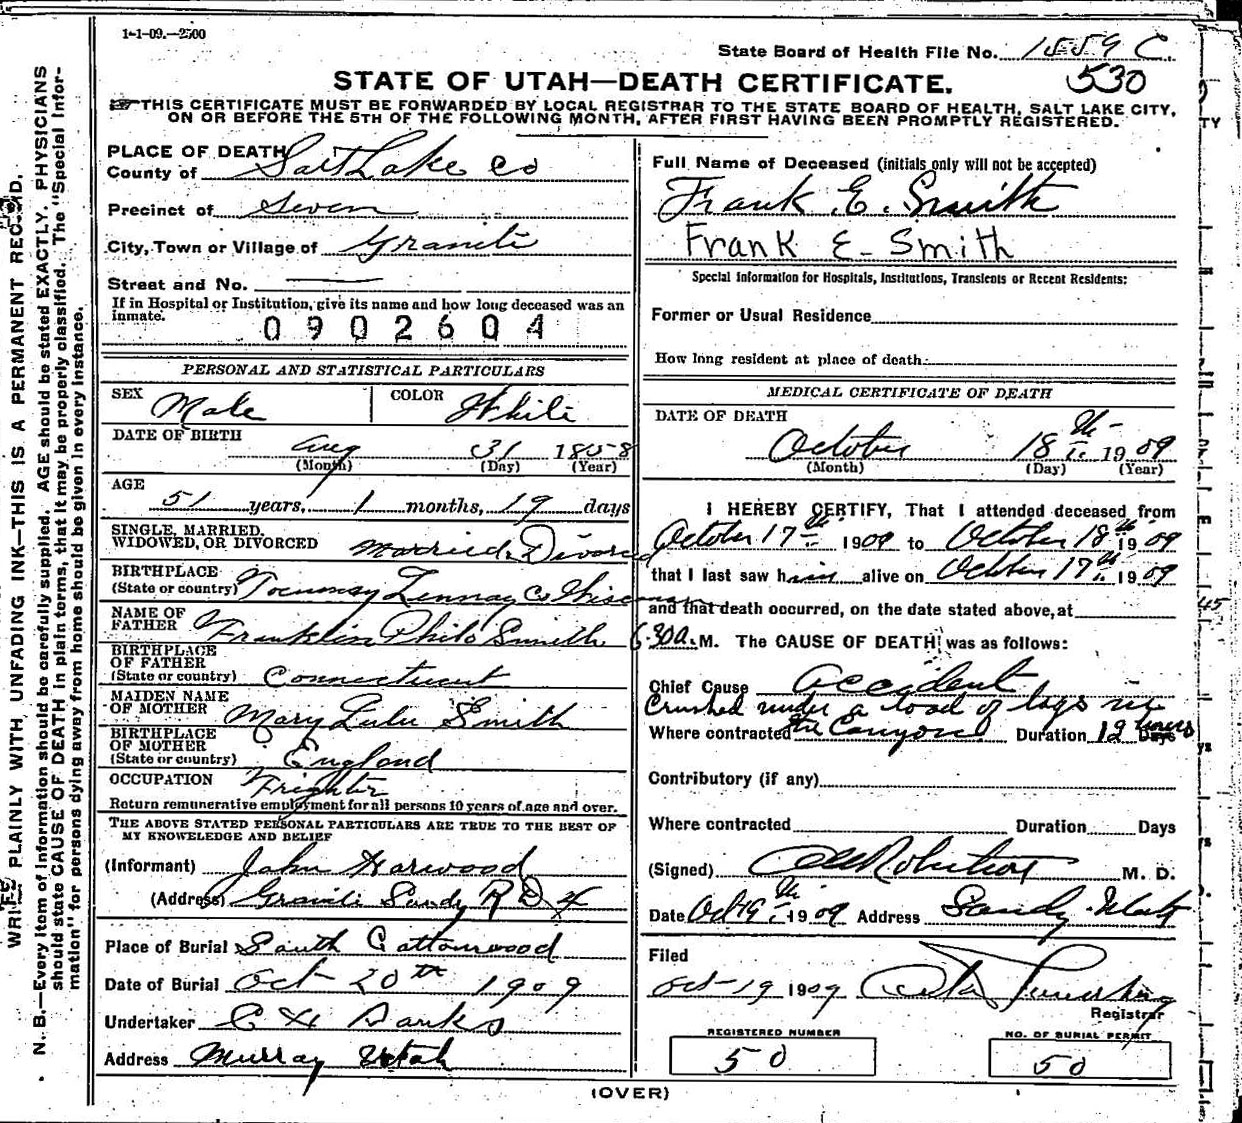 1-1-09.—2500
State Board of Health File No. 1559 C.
530
STATE OF UTAH—DEATH CERTIFICATE.
THIS CERTIFICATE MUST BE FORWARDED BY LOCAL REGISTRAR TO THE STATE BOARD OF HEALTH, SALT LAKE CITY,
ON OR BEFORE THE 5TH OF THE FOLLOWING MONTH, AFTER FIRST HAVING BEEN PROMPTLY REGISTERED.
WRITE PLAINLY WITH UNFADING INK—THIS IS A PERMANENT RECORD.
N. B.—Every item of information should be carefully supplied. AGE should be stated EXACTLY. PHYSICIANS
should state CAUSE OF DEATH in plain terms, that it may be properly classified. The "Special Infor-
mation" for persons dying away from home should be given in every instance.
PLACE OF DEATH
County of Salt Lake Co
Precinct of Seven
City, Town or Village of Granite
Street and No.
If in Hospital or Institution, give its name and how long deceased was an
inmate.
0902604
PERSONAL AND STATISTICAL PARTICULARS
SEX Male COLOR White
DATE OF BIRTH Aug 31 1858
(Month) (Day) (Year)
AGE
51 years, 1 months, 19 days
SINGLE, MARRIED,
WIDOWED, OR DIVORCED Married Divorced
BIRTHPLACE
(State or country)
NAME OF
FATHER Franklin Philo Smith
BIRTHPLACE
OF FATHER
(State or country) Connecticut
MAIDEN NAME
OF MOTHER Mary Lulu Smith
BIRTHPLACE
OF MOTHER
(State or country) England
OCCUPATION Frighter
Return remunerative employment for all persons 10 years of age and over.
THE ABOVE STATED PERSONAL PARTICULARS ARE TRUE TO THE BEST OF
MY KNOWLEDGE AND BELIEF
(Informant) John Harwood
(Address) Granite Sandy R D 4
Place of Burial South Cottonwood
Date of Burial Oct 20th 1909
Undertaker Banks
Address Murray Utah
Full Name of Deceased (initials only will not be accepted)
Frank E. Smith
Frank E Smith
Special Information for Hospitals, Institutions, Transients or Recent Residents:
Former or Usual Residence
How long resident at place of death.
MEDICAL CERTIFICATE OF DEATH
DATE OF DEATH
October 18th 1909
(Month) (Day) (Year)
I HEREBY CERTIFY, That I attended deceased from
October 17th 1909 to October 18th 1909
that I last saw him alive on October 17th 1909
and that death occurred, on the date stated above, at
6.30 a. M. The CAUSE OF DEATH was as follows:
Chief Cause Accident
Crushed under a load of logs in
Where contracted the Canyon Duration 12 hours Days
Contributory (if any)
Where contracted Duration Days
(Signed) Robertson M. D.
Date Oct 19th 1909 Address Sandy Utah
Filed
Oct-19 1909
Registrar
REGISTERED NUMBER
50
NO. OF BURIAL PERMIT
50
(OVER)